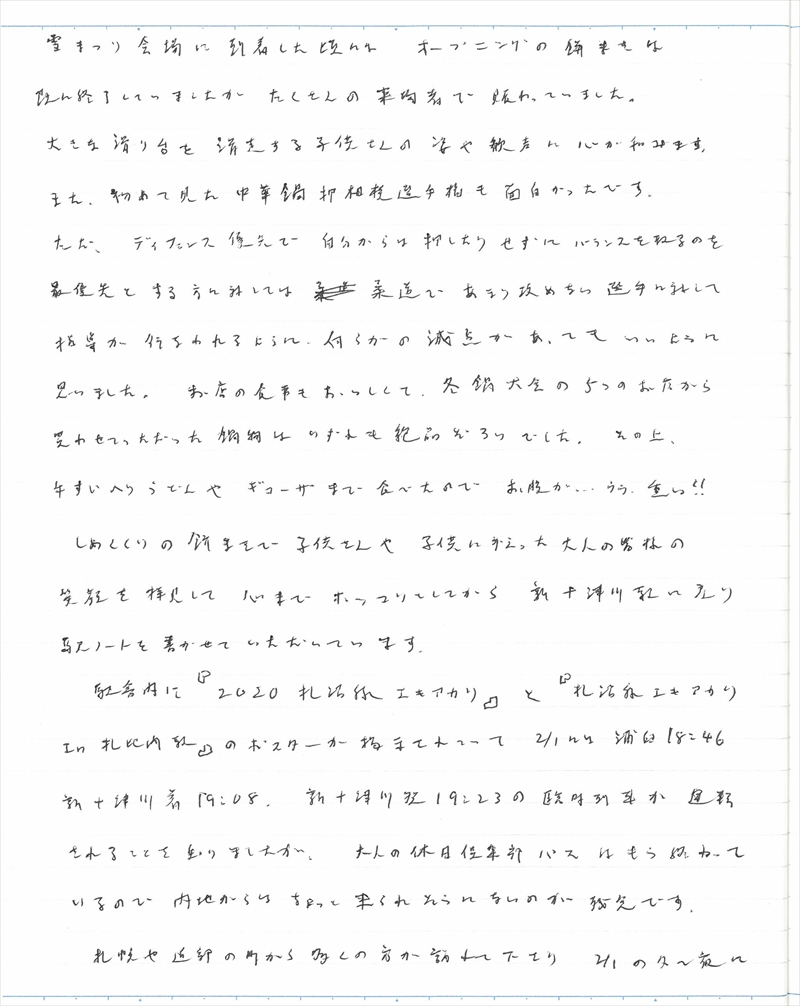 雪まつり会場に到着した頃には オープニングの餅まきは
既に終了していましたが たくさんの来場者で賑わっていました。
大きな滑り台を滑走する子供さんの姿や歓声に心が和みます。
また、初めて見た中華鍋押相撲選手権も面白かったです。
ただ、ディフェンス優先で 自分からは押したりせずにバランスを取るのを
最優先とする方に対しては 柔道であまり攻めない選手に対して
指導が行なわれるように、何らかの減点があってもいいように
思いました。 お店の食事もおいしくて、冬鍋大会の5つのお店から
買わせていただいた鍋物はいずれも絶品ぞろいでした。 その上、
牛すじ入りうどんや ギョーザまで食べたので お腹が…うう、重い!!
しめくくりの餅まきで 子供さんや 子供に戻った大人の皆様の
笑顔を拝見して 心まで ホッコリしてから 新十津川駅に戻り
駅ノートを書かせていただいています。
駅舎内に『2020 札沼線エキアカリ』と『札沼線エキアカリ
In 札比内駅』のポスターが掲示されていて 2/1には 浦臼18:46
新十津川着19:08、 新十津川発19:23の臨時列車が運転
されることを知りましたが、 大人の休日倶楽部パスはもう終わって
いるので 内地からはちょっと来られそうにないのが残念です。
札幌や近郊の町から多くの方が訪れて下さり 2/1の夕〜夜に